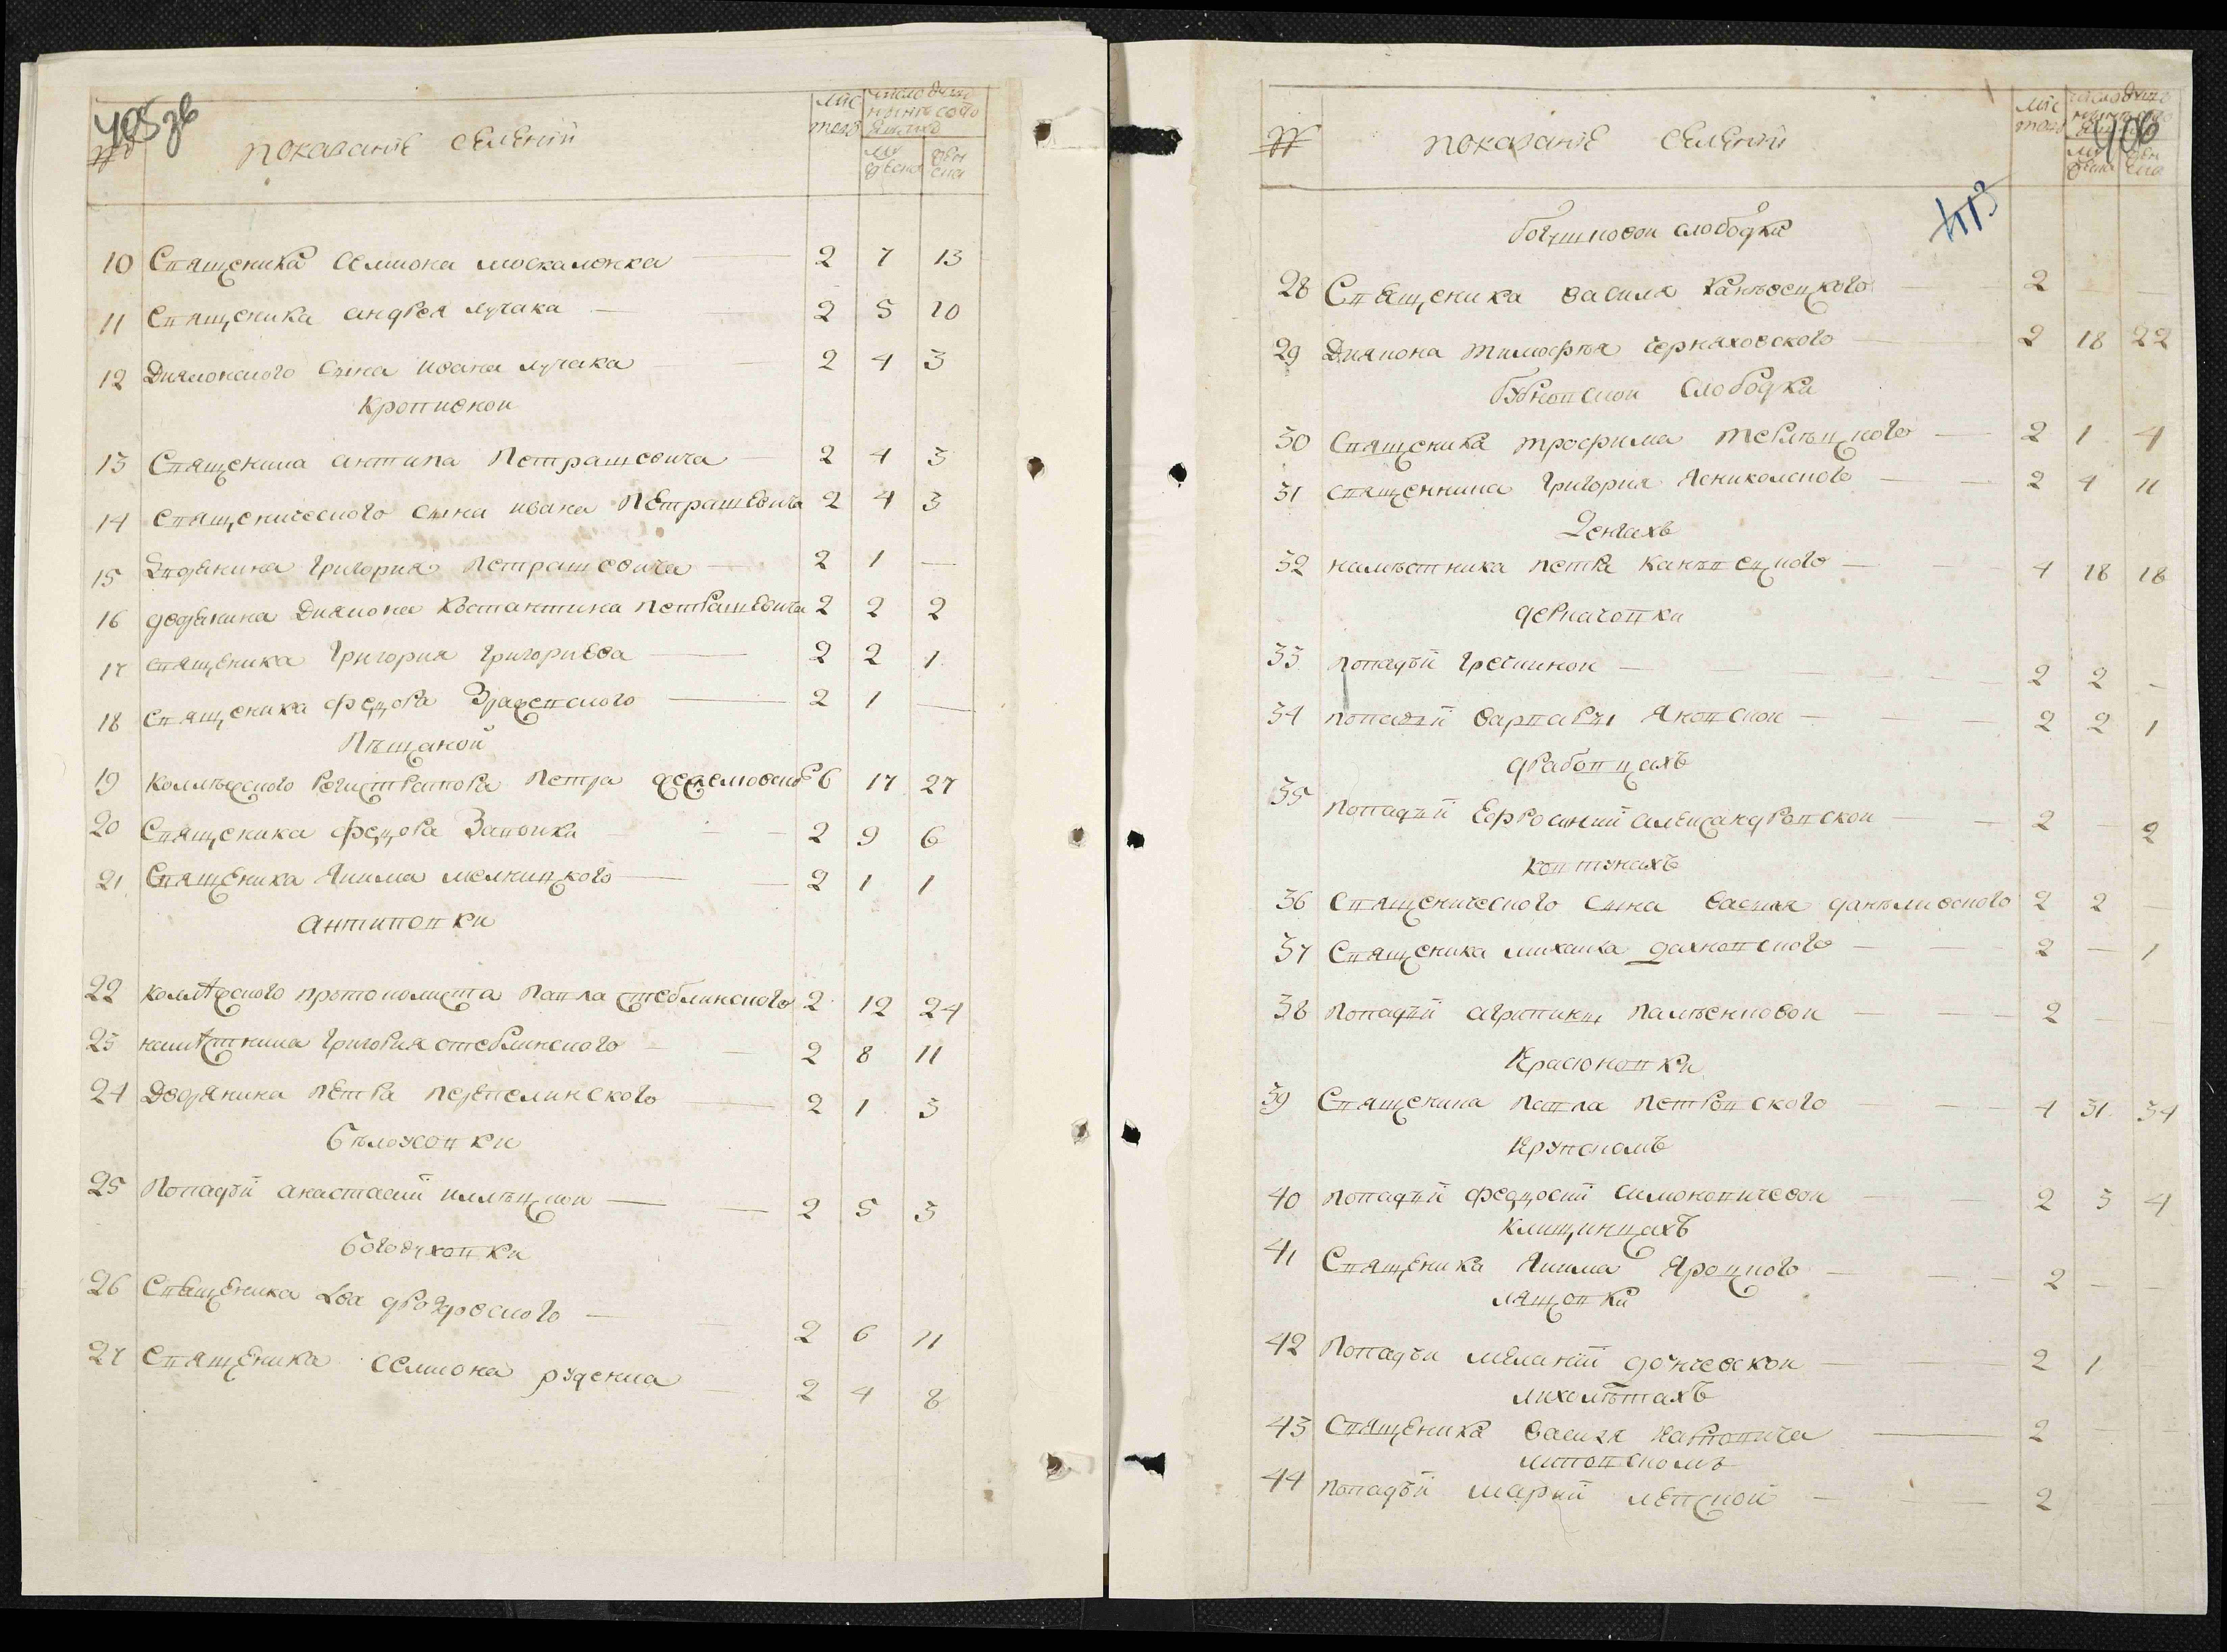 405 зв
№ показаніе селеній мѣс тоъ число душъ нынѣ состо ящихъ
му жеска жен ска
10 Священика Семиона москаленка 2 7 13
11 Священика андрея лучака 2 5 10
12 Дияконского сына ивана лучака 2 4 3
Кропивной
13 Священика антипа Петрашевича 2 4 3
14 священического сына ивана Петрашевича 2 4 3
15 Дворянина григория Петрашевича 2 1 —
16 дворянина Диякона Костантина Петрашевича 2 2 2
17 священика григория григориева 2 2 1
18 священика федора 2 1 —
Пѣщаной
19 коллѣжского регистратора Петра 6 17 27
20 Священика федора Заποйки 2 9 6
21 Священика Якима мелницкого 2 1 1
антиповки
22 коллѣжского протоколиста Павла стеблинского 2 12 24
23 намѣстника григория стеблинского 2 8 11
24 Дворянина Петра перепелинского 2 1 3
бѣлоусовки
25 Попадѣй анастасий илляшной 2 5 3
богодуховки
26 Священика Льва 2 6 11
27 Священика Семиона руденка 2 4 8
406
№ показаніе селеній мѣс тоъ число душъ
му жеска жен ска
413
богушковой слободки
28 Священика василя Канѣвецкого 2
29 Диякона тимофѣя черняховского 2 18 22
бубновской слободки
30 Священика трофима терлѣцкого 2 1 4
31 священника григория Ясниковского 2 4 11
Денгахъ
32 намѣстника петра канѣвецкого 4 18 18
деркачовки
33 попадѣй гречинои 2 2 -
34 попадѣй варвары Яновской 2 2 1
драбовцахъ
35 Попадѣй Ефросиний александровской 2 - 2
ковтунахъ
36 священического сына василя данѣлевского 2 2 —
37 Священика михаила дахновского 2 — 1
38 Попадѣй агрипины 2
Красюновки
39 Священика павла петровского 4 31 34
Крупскомъ
40 попадѣй федосий симоновичевой 2 3 4
клищинцахъ
41 Священика Якима Яроцкого 2 - -
лящовки
42 Попадѣи меланий дончевской 2 1
лихолѣтахъ
43 Священика василя Карповича 2
липовскомъ
44 попадѣй марий лепской 2